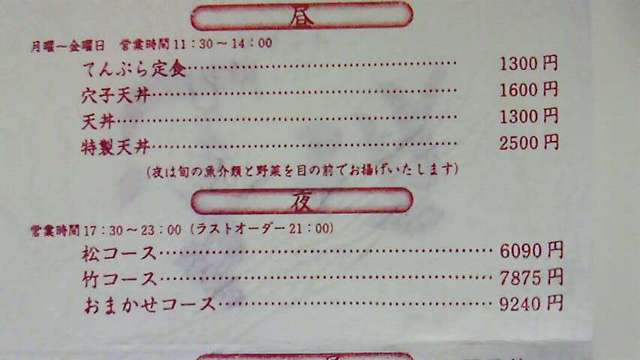 昼
月曜～金曜日 営業時間11:30～14:00
てんぷら定食 1300円
穴子天丼 1600円
天丼 1300円
特製天丼 2500円
(夜は旬の魚介類と野菜を目の前でお揚げいたします)
夜
営業時間17:30～23:00 (ラストオーダー21:00)
松コース 6090円
竹コース 7875円
おまかせコース 9240円